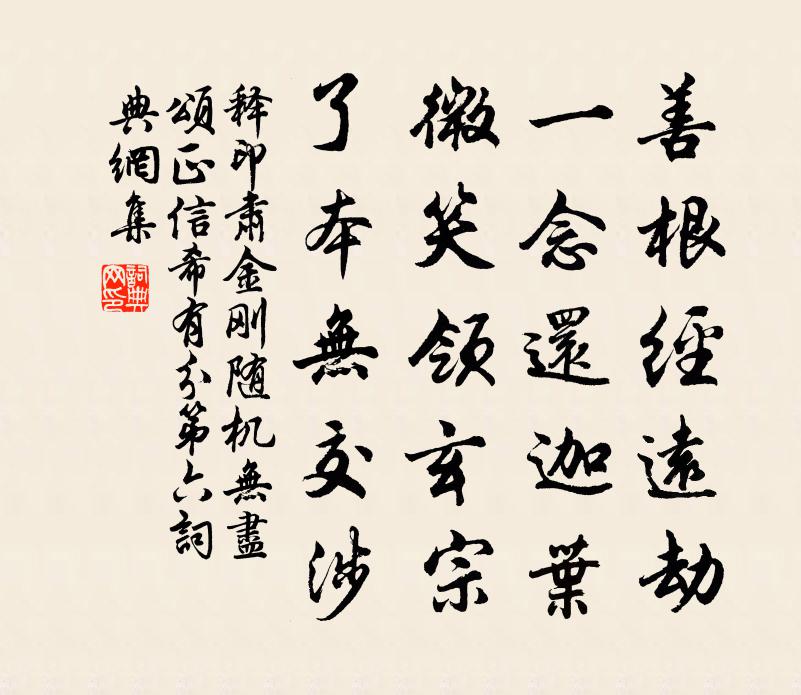 善根經遠劫
一念還迦葉
微笑領玄宗
了本無交涉
释印肃金刚随机無盡
頌正信希有分第六詞
典網集
詞典网印